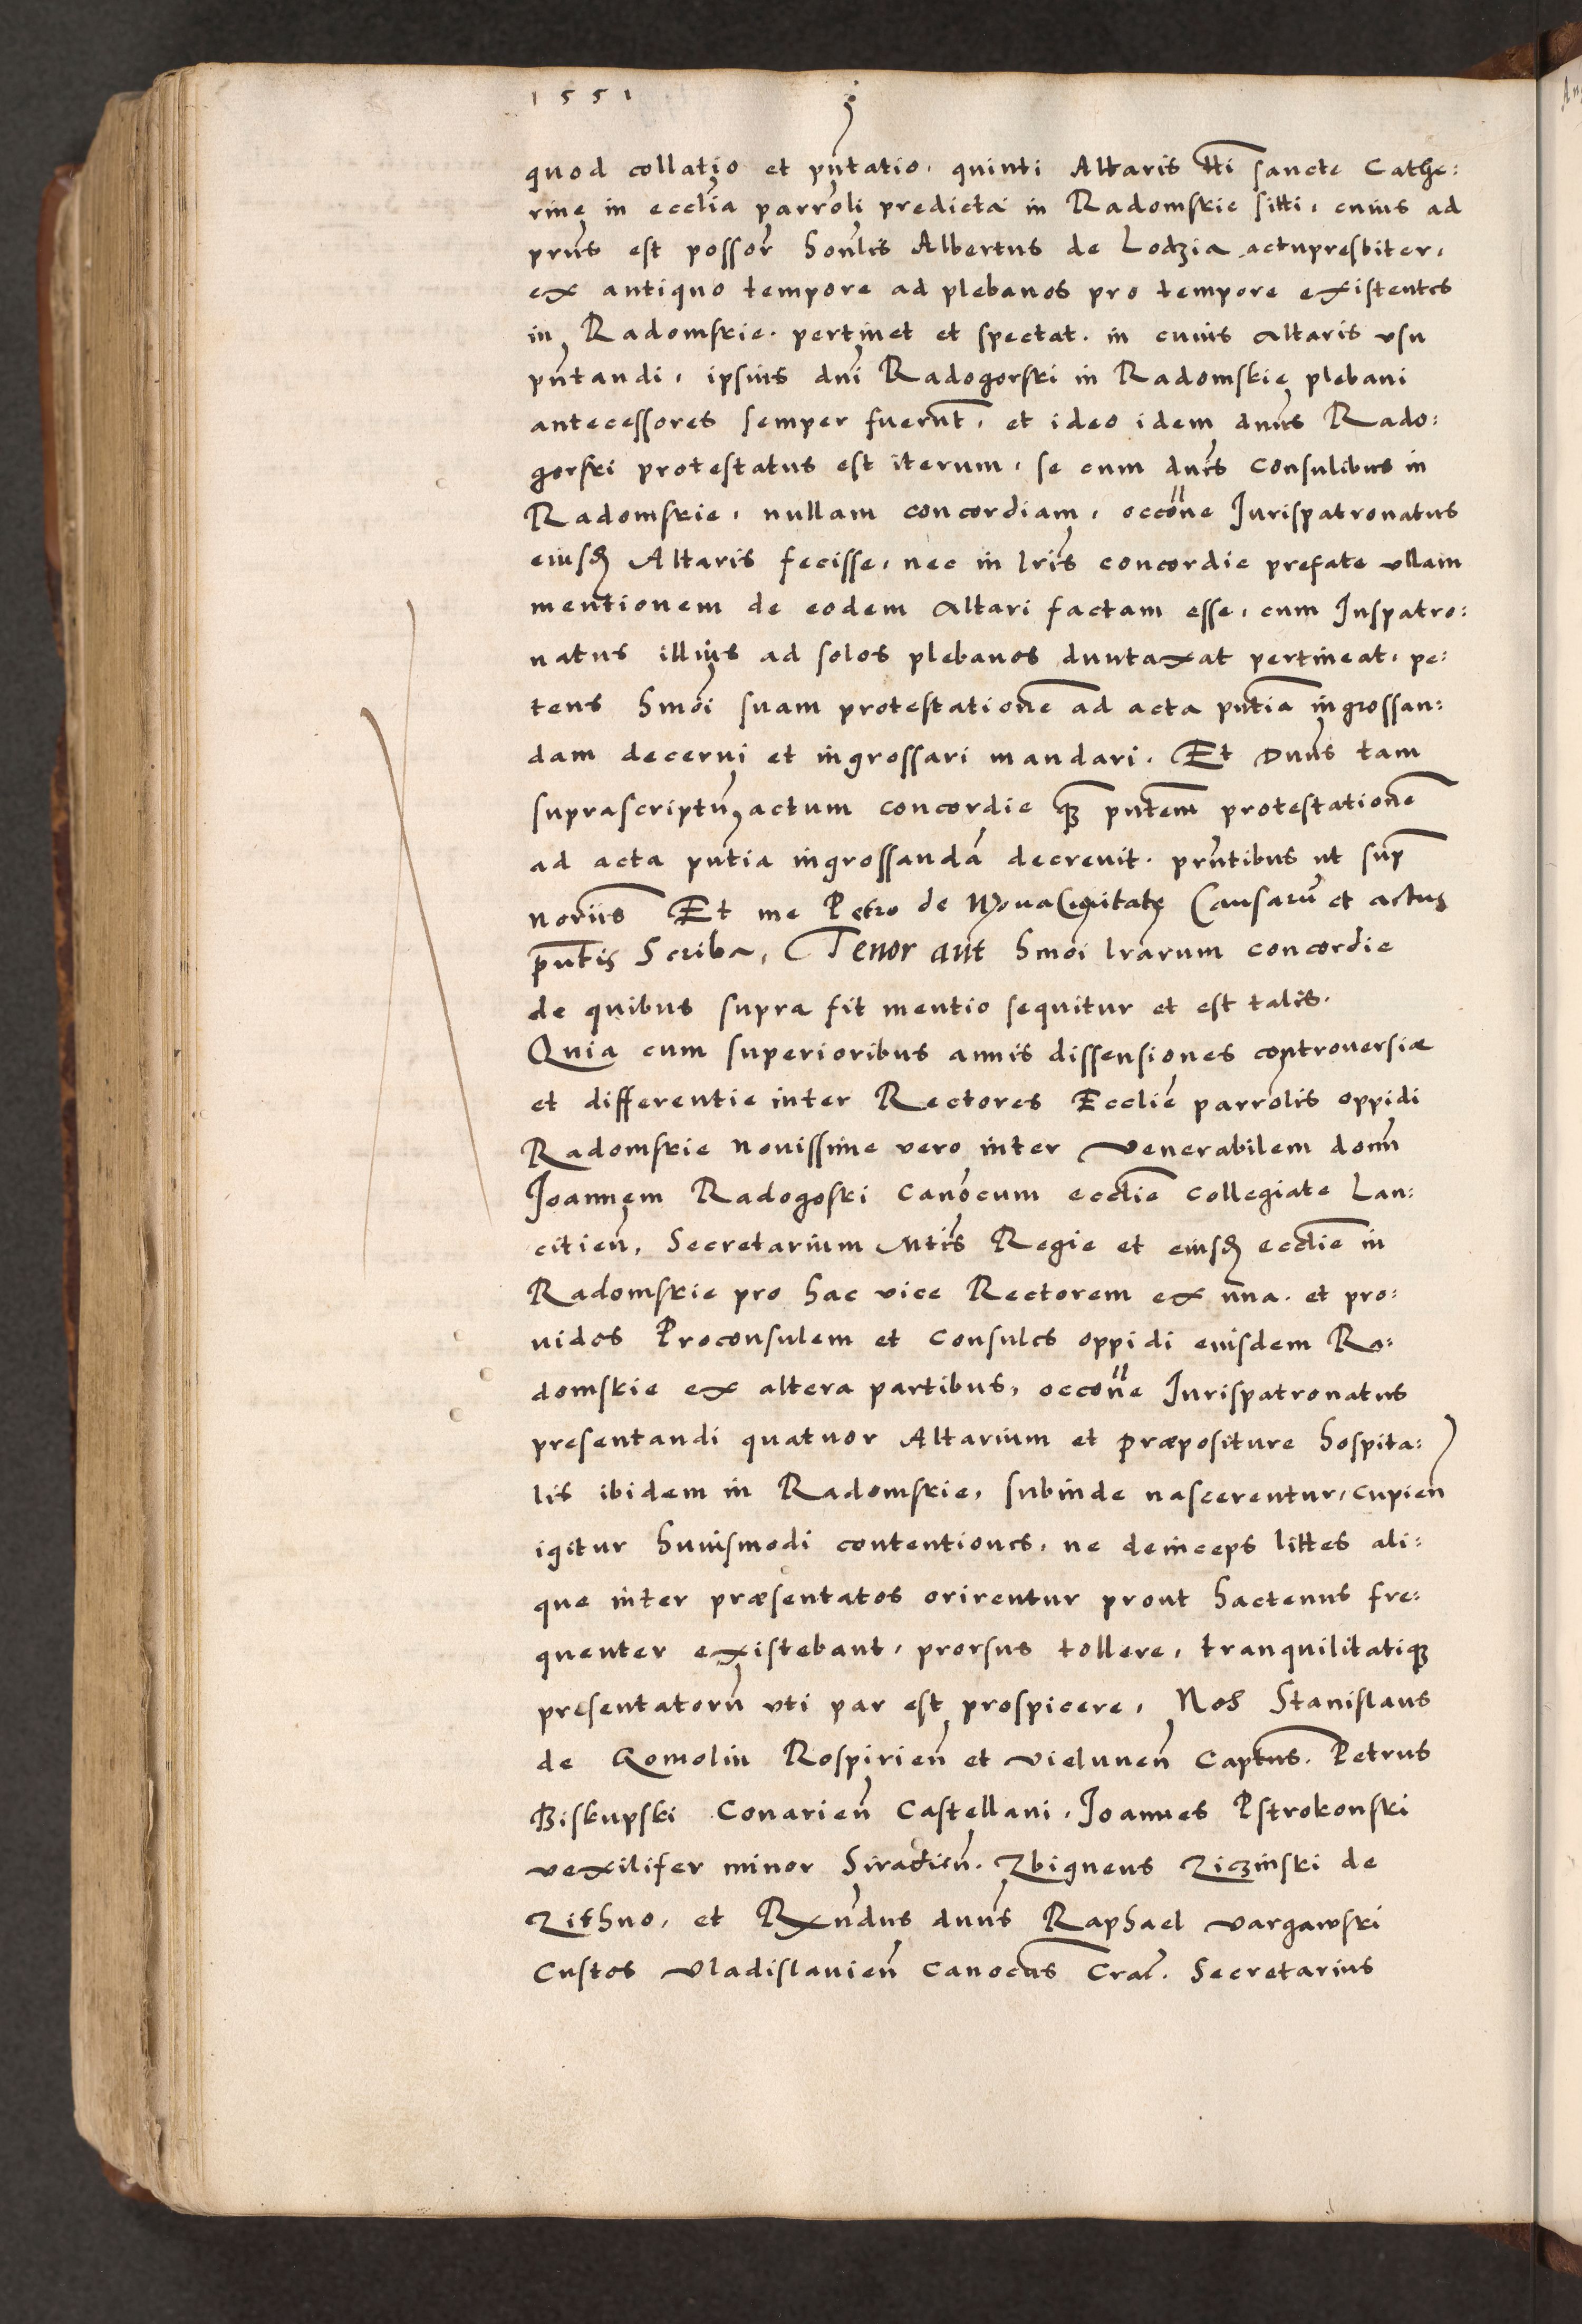 1551
quod collatio et pñtatio, quinti Altaris tti sancte Cathe:
rine in ecclīa parroli predicta in Radomskie sitti, cuius ad
prñs est possor hoñlis Albertus de Lodzia actupresbiter,
ex antiquo tempore ad plebanos pro tempore existentes
in Radomskie. pertinet et spectat. in cuius altaris usu
pñtandi, ipsius dñi Radogorski in Radomskie plebani
antecessores semper fuerunt, et ideo idem dñus Rado:
gorski protestatus est iterum, se cum dñis Consulibus in
Radomskie, nullam concordiam, occõne Jurispatronatus
eiusd Altaris fecisse, nec in lris concordie prefate ullam
mentionem de eodem Altari factam esse, cum Juspatro:
natus illius ad solos plebanos duntaxat pertineat, pe:
tens hmõi suam protestationē ad acta pñtia ingrossan:
dam decerni et ingrossari mandari. Et Dñus tam
suprascriptum actum concordie q̃ pñtem protestationē
ad acta pñtia ingrossandā decrevit. prñtibus ut sup̄
noriis Et me Petro de Nova Civitate Causarū et actus
pñtis Scriba, Tenor aūt hmõi lrarum concordie
de quibus supra fit mentio sequitur et est talis.
Quia cum superioribus annis dissensiones controversiæ
et differentie inter Rectores Ecclīe parrolis oppidi
Radomskie novissime vero inter Venerabilem domñ
Joannem Radogoski Canõcum ecclīe Collegiate Lan:
citieñ, Secretarium Mtis Regie et eiusd ecclīe in
Radomskie pro hac vice Rectorem ex una. et pro:
vidos Proconsulem et Consules oppidi eiusdem Ra:
domskie ex altera partibus, occõne Jurispatronatus
presentandi quatuor Altarium et præpositure hospita:
lis ibidem in Radomskie, subinde nascerentur, cupien
igitur huiusmodi contentiones, ne deinceps littes ali:
que inter præsentatos orirentur prout hactenus fre:
quenter existebant, prorsus tollere, tranquilitatiq
presentatorū uti par est prospicere, Nos Stanislaus
de Gomolin Rospirieñ et Vieluneñ Captñs. Petrus
Biskupski Conarieñ Castellani, Joannes Pstrokonski
vexilifer minor Siradieñ. Zbigneus Ziczinski de
Zithno, et Rxñdus dñus Raphael Vargawski
Custos Vladislavieñ Canocus Crac̄. Secretarius